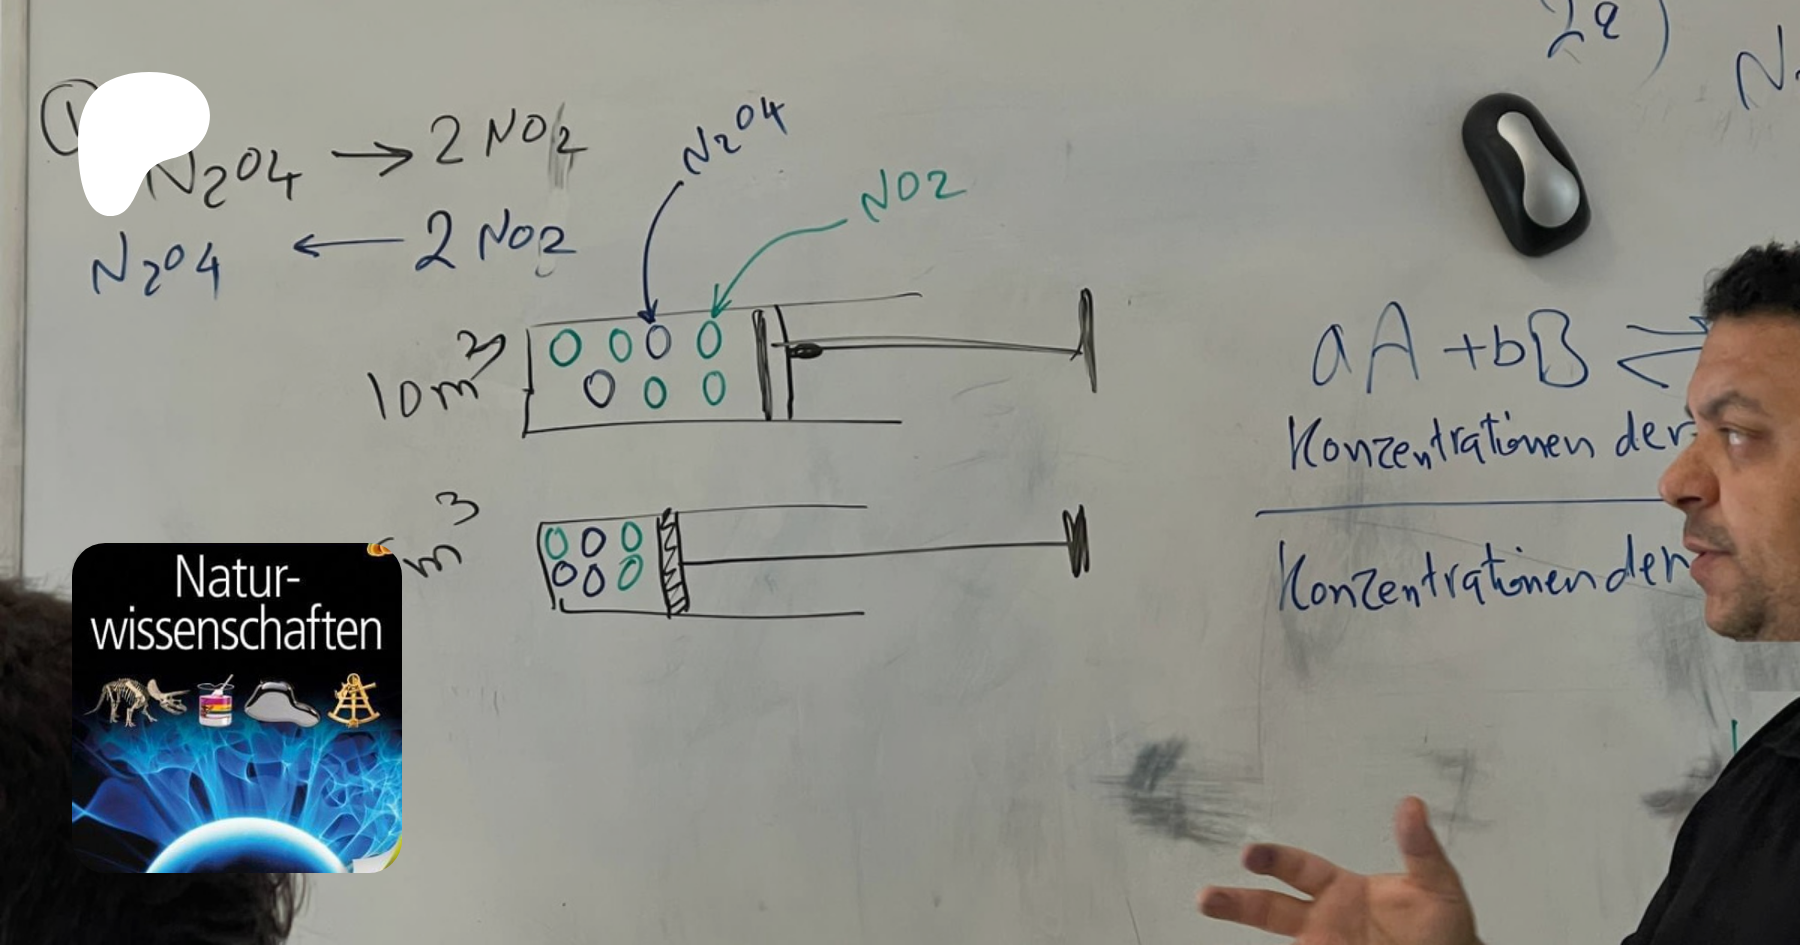 1
N2O4 → 2 NO2
N2O4 ← 2 NO2
N2O4
NO2
10 m³
m³
2a)
N
aA + bB ⇌
Konzentrationen der
Konzentrationen der
Natur-
wissenschaften